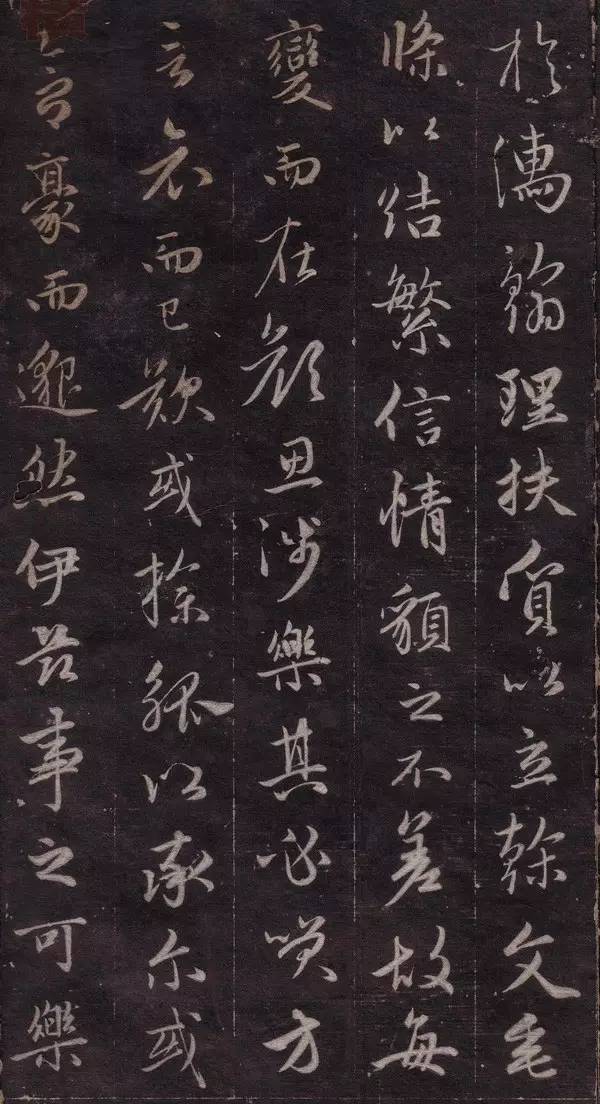 於濡翰理扶質以立榦文垂
條以結繁信情䫉之不差故每
變而在顏思涉樂其必咲方
言哀而已歎或操觚以率尔或
含豪而邈然伊茲事之可樂